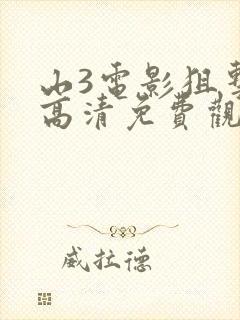 山3電影狙擊
高清免費觀
威拉德